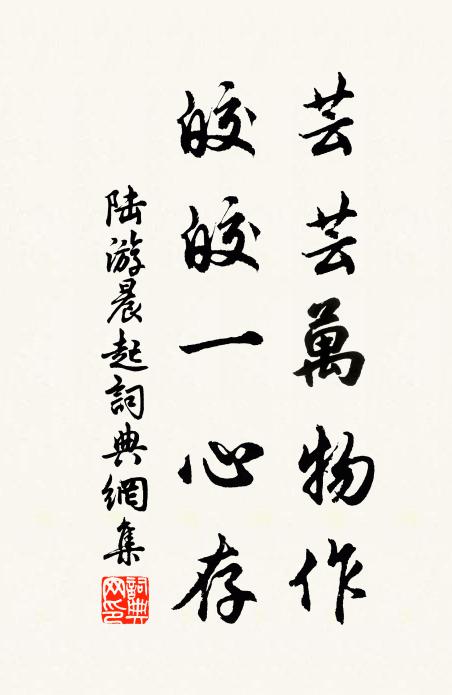 芸芸萬物作
皎皎一心存
陸游晨起詞典網集
詞典网印